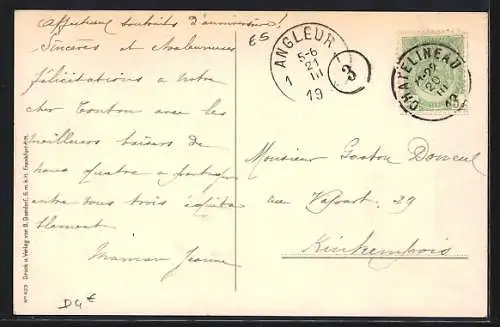 affectueux souhaits d'anniversaire!
Sincères et chaleureuses
félicitations a notre
cher Tonton avec les
meilleurs baisers de
nous quatre a partager
entre vous trois équita
blement
Maman Jeanne
65
ANGLEUR
5-6
21
III
19
1
3
CHATELINEAU
20
III
13
Monsieur Gaston Doncul
rue Vapart. 29
Kinkempois
Nº 623 Druck u. Verlag von B. Dondorf, G.m.b.H. Frankfurt a/m.
D4€